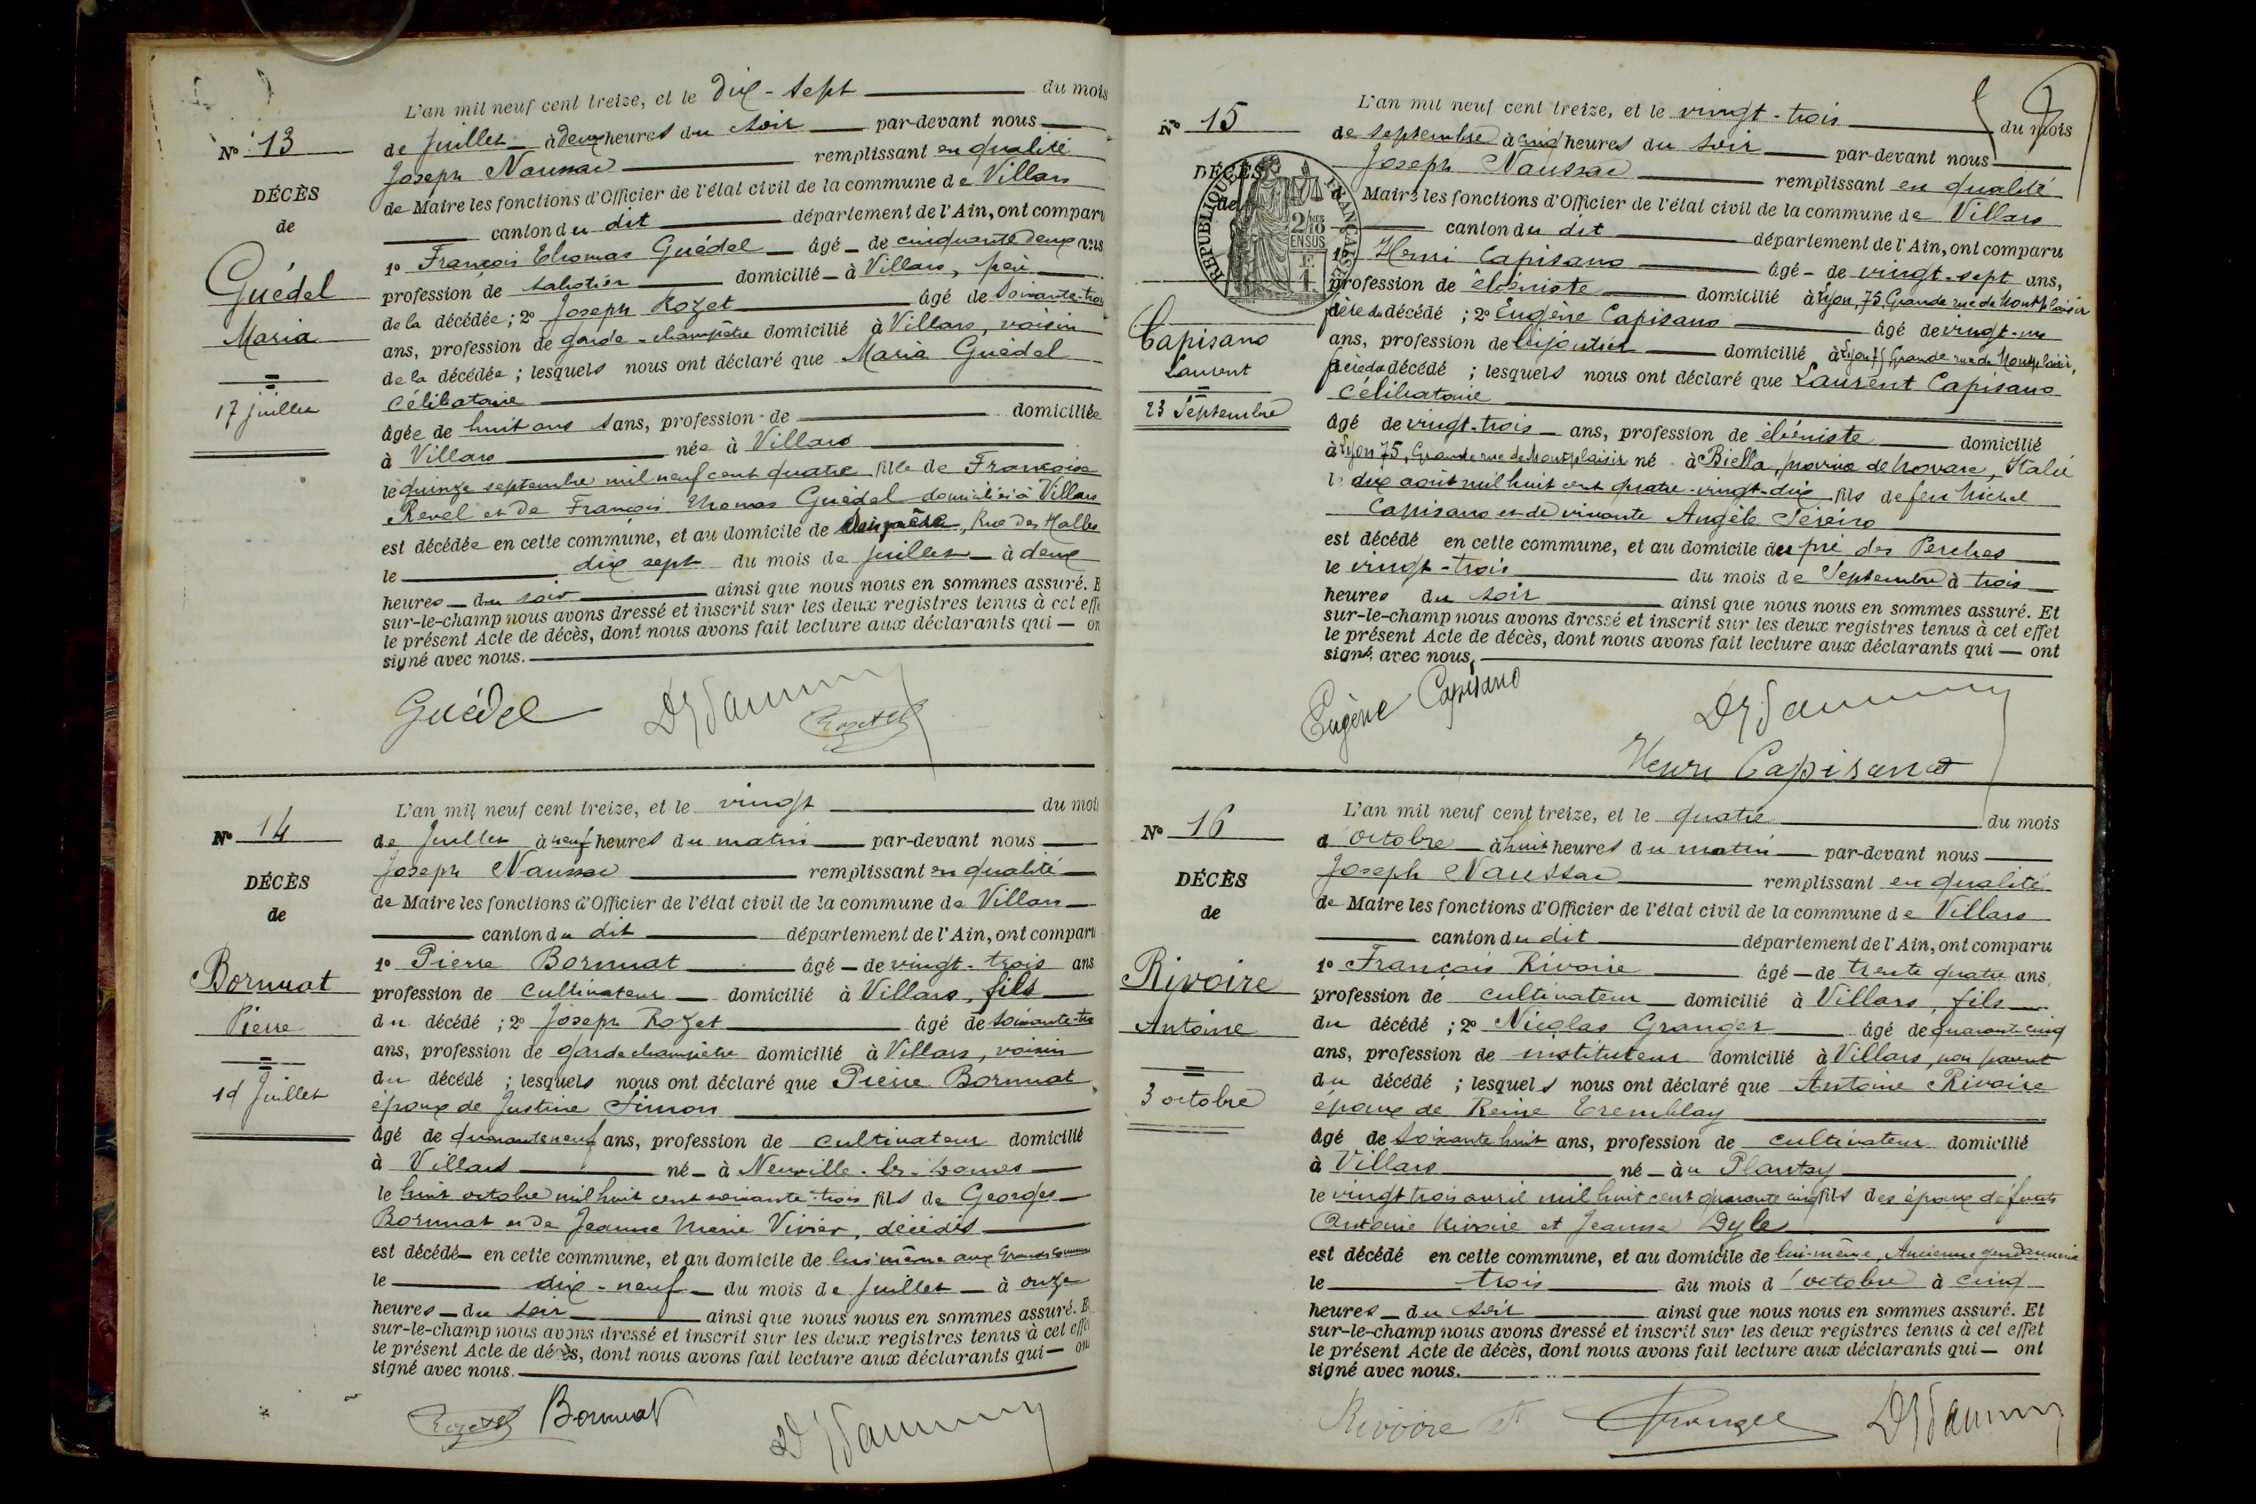 L'an mil neuf cent treize, et le dix-sept du mois
N° 13
de juillet à deux heures du soir par-devant nous
Joseph Naussac remplissant en qualité
DÉCÈS
de Maire les fonctions d'Officier de l'état civil de la commune de Villars
de
canton du dit département de l'Ain, ont comparu
1° François Thomas Guédel âgé de cinquante deux ans
Guédel
profession de sabotier domicilié à Villars, père
Maria
de la décédée ; 2° Joseph Rozet âgé de soixante-trois
ans, profession de garde-champêtre domicilié à Villars, voisin
de la décédée ; lesquels nous ont déclaré que Maria Guédel
17 juillet
célibataire
âgée de huit ans sans, profession de domiciliée
à Villars née à Villars
le quinze septembre mil neuf cent quatre fille de Françoise
Revel et de François Thomas Guédel domiciliés à Villars
est décédée en cette commune, et au domicile de , Rue des Halles
le dix sept du mois de juillet à deux
heures du soir ainsi que nous nous en sommes assuré. E
sur-le-champ nous avons dressé et inscrit sur les deux registres tenus à cet effe
le présent Acte de décès, dont nous avons fait lecture aux déclarants qui on
signé avec nous.
Guédel
Rozet
L'an mil neuf cent treize, et le vingt du mois
N° 14
de juillet à neuf heures du matin par-devant nous
Joseph Naussac remplissant en qualité
DÉCÈS
de Maire les fonctions d'Officier de l'état civil de la commune de Villars
de
canton du dit département de l'Ain, ont comparu
1° Pierre Bornuat âgé de vingt-trois ans
Bornuat
profession de cultivateur domicilié à Villars, fils
Pierre
du décédé ; 2° Joseph Rozet âgé de soixante-tro
ans, profession de garde champêtre domicilié à Villars, voisin
19 Juillet
du décédé ; lesquels nous ont déclaré que Pierre Bornuat,
époux de Justine Simon
âgé de quarante neuf ans, profession de cultivateur domicilié
à Villars né à Neuville-les-Dames
le huit octobre mil huit cent soixante-trois fils de Georges
Bornuat et de Jeanne Marie Vivier, décédés
est décédé en cette commune, et au domicile de lui même aux Grands Communs
le dix-neuf du mois de juillet à onze
heures du soir ainsi que nous nous en sommes assuré. E
sur-le-champ nous avons dressé et inscrit sur les deux registres tenus à cet effe
le présent Acte de décès, dont nous avons fait lecture aux déclarants qui on
signé avec nous.
Rozet Bornuat
L'an mil neuf cent treize, et le vingt-trois du mois
N° 15
de septembre à cinq heures du soir par-devant nous
Joseph Naussac remplissant en qualité
DÉCÈS
de Maire les fonctions d'Officier de l'état civil de la commune de Villars
de
RÉPUBLIQUE FRANÇAISE
2/10 EN SUS
canton du dit département de l'Ain, ont comparu
1° Henri Capisano âgé de vingt-sept ans,
profession de ébéniste domicilié à Lyon, 75, Grande rue de Montplaisir
frère du décédé ; 2° Eugène Capisano âgé de vingt-un
Capisano
ans, profession de bijoutier domicilié à Lyon 75 Grande rue de Montplaisir,
Laurent
frère du décédé ; lesquels nous ont déclaré que Laurent Capisano
23 Septembre
célibataire
âgé de vingt-trois ans, profession de ébéniste domicilié
à Lyon 75, Grande rue de Montplaisir né à Biella, province de Novare, Italie
le dix août mil huit cent quatre-vingt-dix fils de feu Michel
Capisano et de vivante Angèle
est décédé en cette commune, et au domicile du pré des Perches
le vingt-trois du mois de Septembre à trois
heures du soir ainsi que nous nous en sommes assuré. Et
sur-le-champ nous avons dressé et inscrit sur les deux registres tenus à cet effet
le présent Acte de décès, dont nous avons fait lecture aux déclarants qui ont
signé avec nous,
Eugène Capisano
Henri Capisano
L'an mil neuf cent treize, et le quatre du mois
N° 16
d'octobre à huit heures du matin par-devant nous
Joseph Naussac remplissant en qualité
DÉCÈS
de Maire les fonctions d'Officier de l'état civil de la commune de Villars
de
canton du dit département de l'Ain, ont comparu
1° François Rivoire âgé de trente quatre ans,
Rivoire
profession de cultivateur domicilié à Villars, fils
Antoine
du décédé ; 2° Nicolas Granger âgé de quarante-cinq
ans, profession de instituteur domicilié à Villars, non parent
3 octobre
du décédé ; lesquels nous ont déclaré que Antoine Rivoire
époux de Reine Tremblay
âgé de soixante huit ans, profession de cultivateur domicilié
à Villars né au Plantay
le vingt trois avril mil huit cent quarante cinq fils des époux défunts
Antoine Rivoire et Jeanne Dyle
est décédé en cette commune, et au domicile de lui-même, Ancienne gendarmerie
le trois du mois d'octobre à cinq
heures du soir ainsi que nous nous en sommes assuré. Et
sur-le-champ nous avons dressé et inscrit sur les deux registres tenus à cet effet
le présent Acte de décès, dont nous avons fait lecture aux déclarants qui ont
signé avec nous.
Rivoire Granger